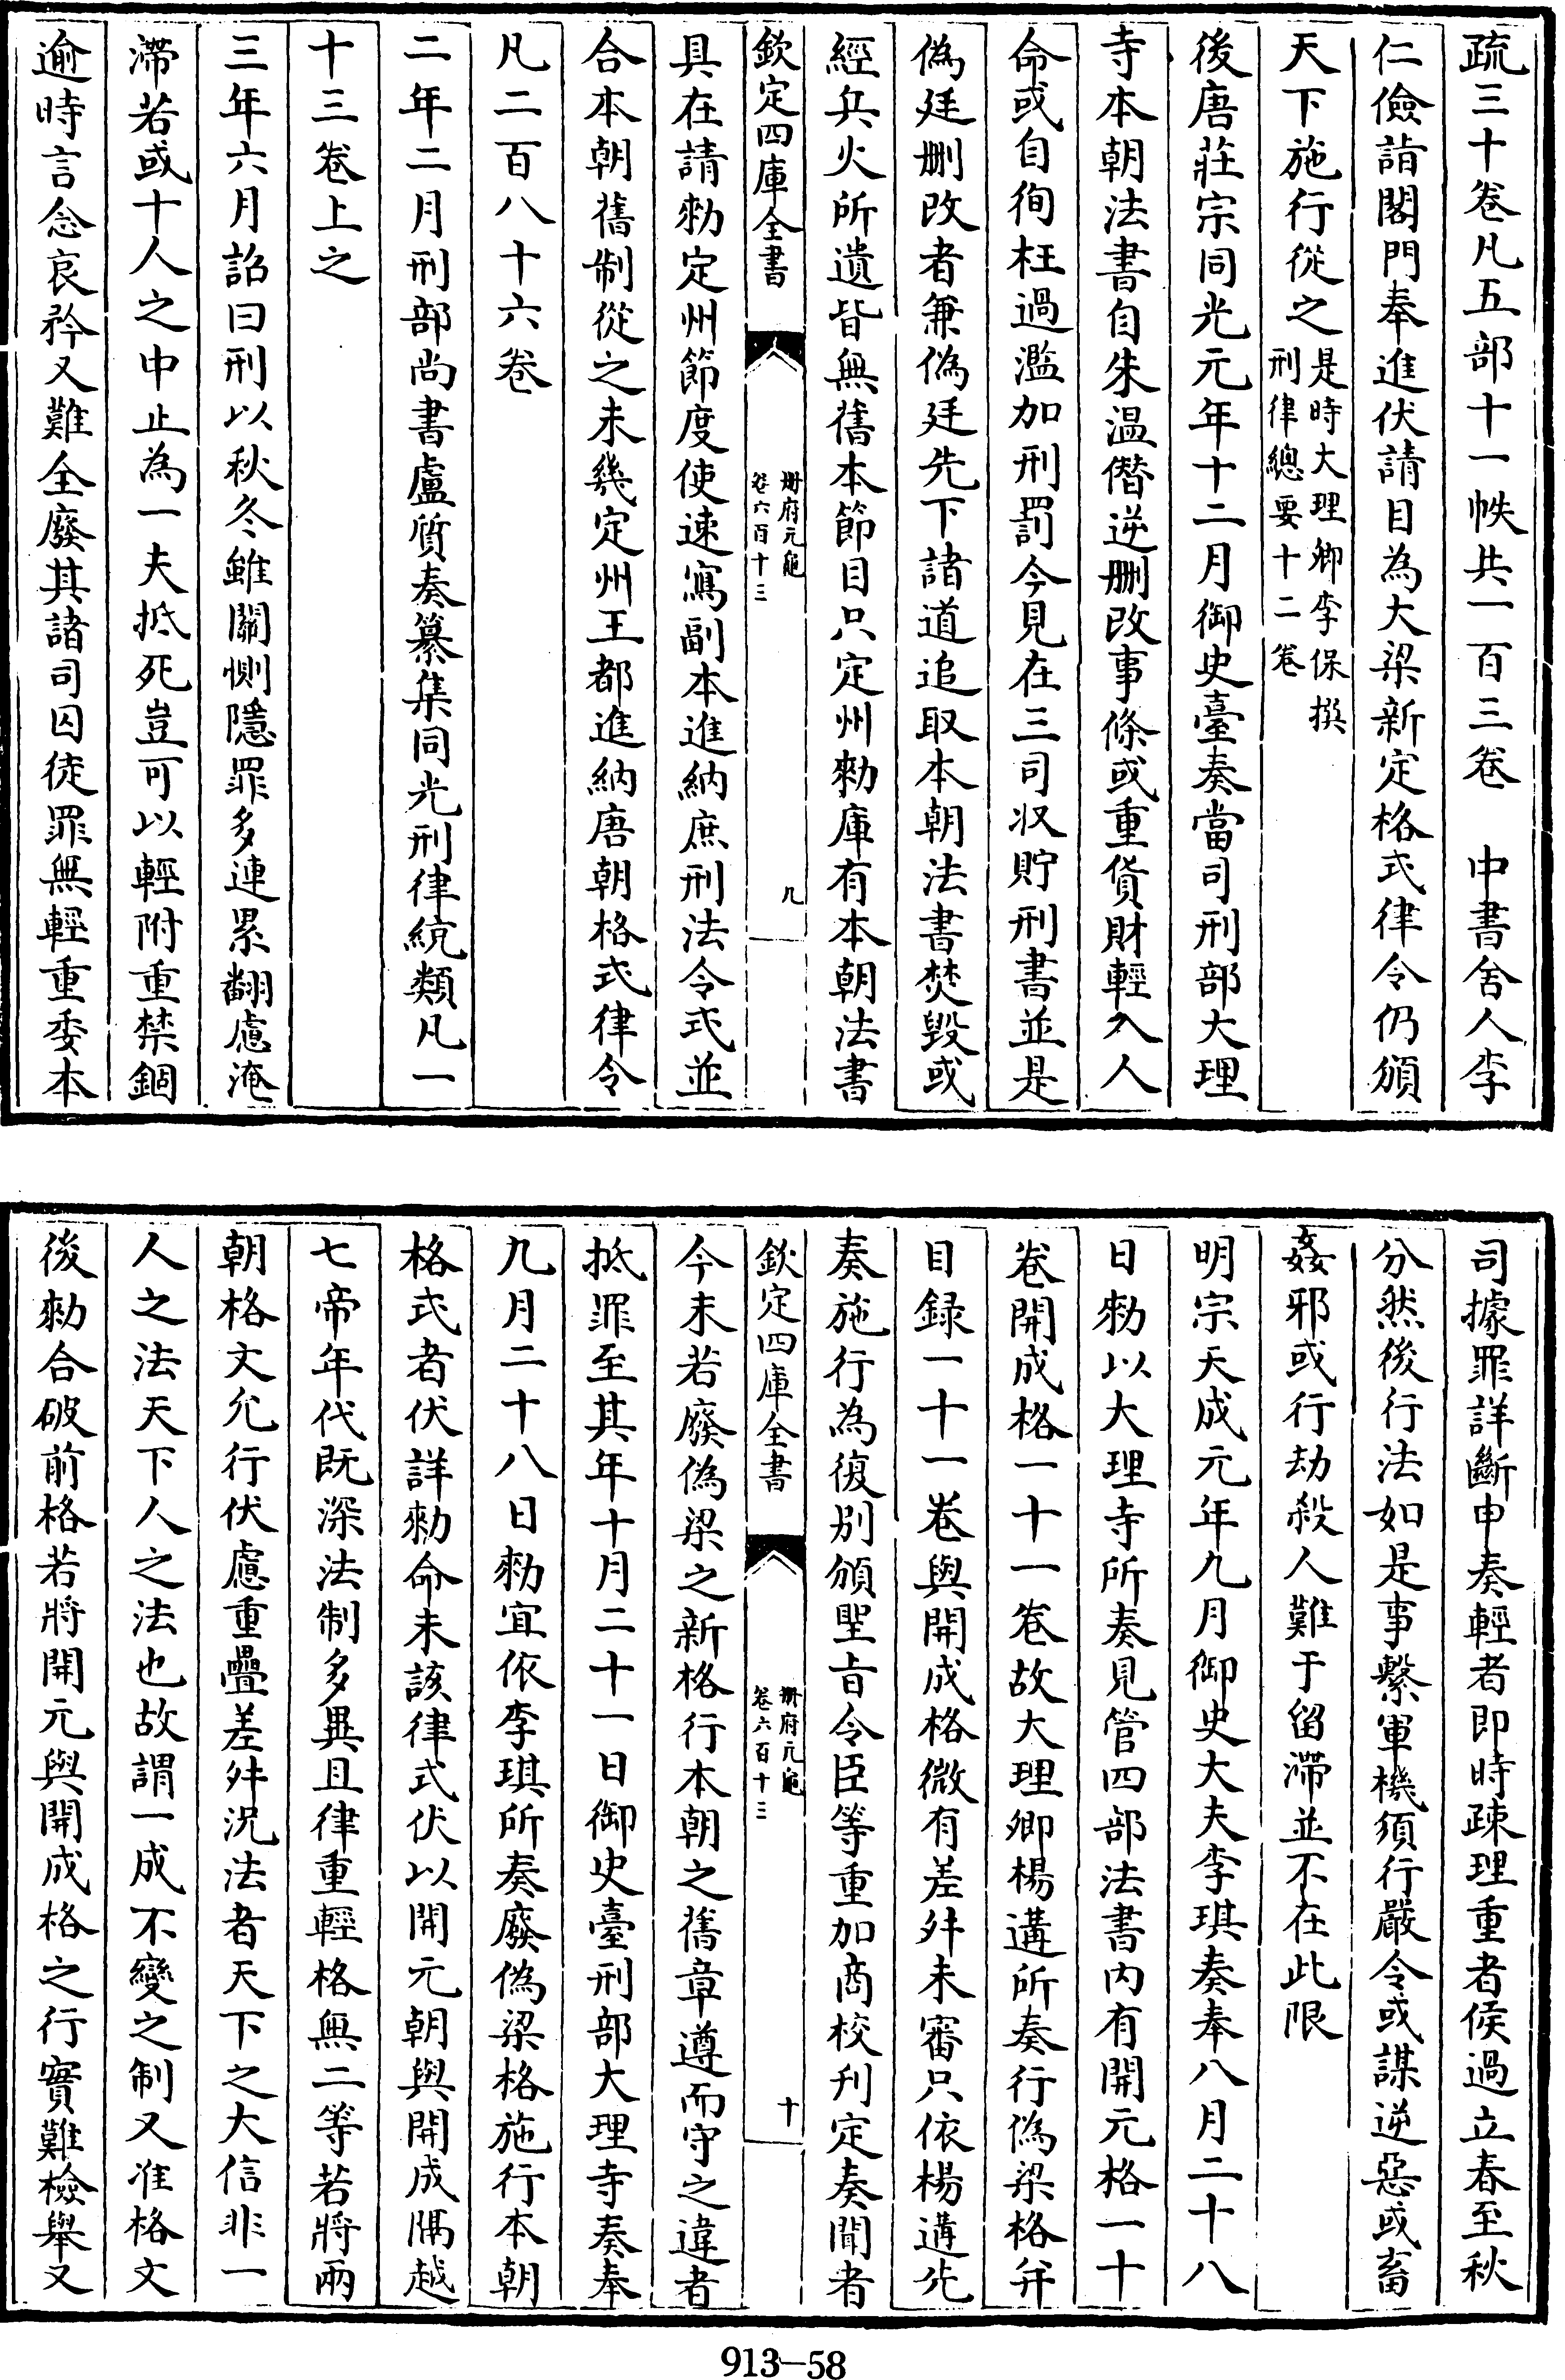 疏三十卷凡五部十一帙共一百三卷　中書舍人李
仁儉詣閣門奉進伏請目為大梁新定格式律令仍頒
天下施行從之是時大理卿李保撰
刑律總要十二卷
後唐莊宗同光元年十二月御史臺奏當司刑部大理
寺本朝法書自朱溫僭逆刪改事條或重貨財輕入人
命或自徇枉過濫加刑罰今見在三司收貯刑書並是
偽廷刪改者兼偽廷先下諸道追取本朝法書焚毀或
經兵火所遺皆無舊本節目只定州勑庫有本朝法書
欽定四庫全書
冊府元龜
卷六百十三
九
具在請勑定州節度使速寫副本進納庶刑法令式並
合本朝舊制從之未幾定州王都進納唐朝格式律令
凡二百八十六卷
二年二月刑部尚書盧質奏纂集同光刑律統類凡一
十三卷上之
三年六月詔曰刑以秋冬雖關惻隱罪多連累翻慮淹
滯若或十人之中止為一夫抵死豈可以輕附重禁錮
逾時言念哀矜又難全廢其諸司囚徒罪無輕重委本
司據罪詳斷申奏輕者即時疎理重者候過立春至秋
分然後行法如是事繫軍機須行嚴令或謀逆惡或畜
姦邪或行劫殺人難于留滯並不在此限
明宗天成元年九月御史大夫李琪奏奉八月二十八
日勑以大理寺所奏見管四部法書內有開元格一十
卷開成格一十一卷故大理卿楊遘所奏行偽梁格并
目録一十一卷與開成格微有差舛未審只依楊遘先
奏施行為復別頒聖旨令臣等重加商校刊定奏聞者
欽定四庫全書
冊府元龜
卷六百十三
十
今未若廢偽梁之新格行本朝之舊章遵而守之違者
抵罪至其年十月二十一日御史臺刑部大理寺奏奉
九月二十八日勑宜依李琪所奏廢偽梁格施行本朝
格式者伏詳勑命未該律式伏以開元朝與開成隅越
七帝年代既深法制多異且律重輕格無二等若將兩
朝格文允行伏慮重疊差舛況法者天下之大信非一
人之法天下人之法也故謂一成不變之制又准格文
後勑合破前格若將開元與開成格之行實難檢舉又
913—58